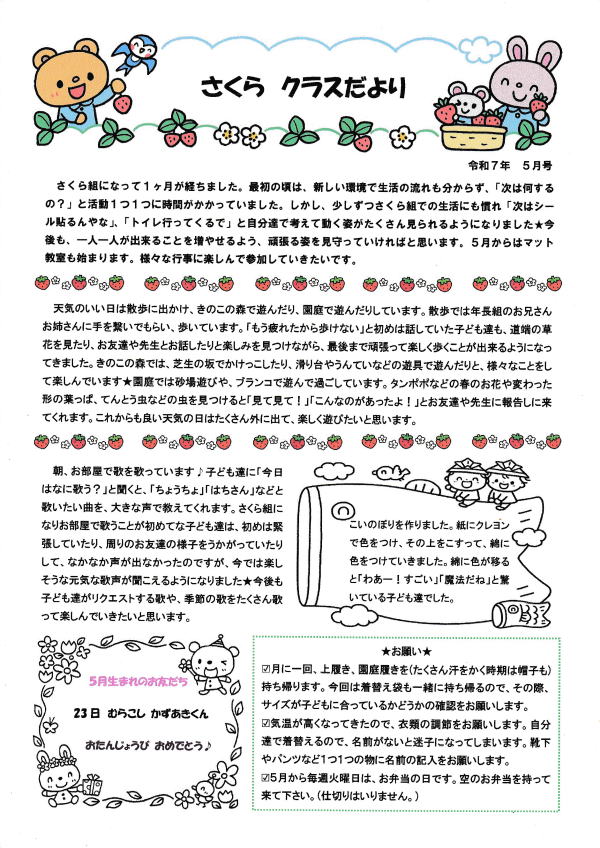 さくら クラスだより
令和７年 ５月号
さくら組になって１ヶ月が経ちました。最初の頃は、新しい環境で生活の流れも分からず、「次は何する
の？」と活動１つ１つに時間がかかっていました。しかし、少しずつさくら組での生活にも慣れ「次はシー
ル貼るんやな」、「トイレ行ってくるで」と自分達で考えて動く姿がたくさん見られるようになりました★今
後も、一人一人が出来ることを増やせるよう、頑張る姿を見守っていければと思います。５月からはマット
教室も始まります。様々な行事に楽しんで参加していきたいです。
天気のいい日は散歩に出かけ、きのこの森で遊んだり、園庭で遊んだりしています。散歩では年長組のお兄さん
お姉さんに手を繋いでもらい、歩いています。「もう疲れたから歩けない」と初めは話していた子ども達も、道端の草
花を見たり、お友達や先生とお話したりと楽しみを見つけながら、最後まで頑張って楽しく歩くことが出来るようになっ
てきました。きのこの森では、芝生の坂でかけっこしたり、滑り台やうんていなどの遊具で遊んだりと、様々なことをし
て楽しんでいます★園庭では砂場遊びや、ブランコで遊んで過ごしています。タンポポなどの春のお花や変わった
形の葉っぱ、てんとう虫などの虫を見つけると「見て見て！」「こんなのがあったよ！」とお友達や先生に報告しに来
てくれます。これからも良い天気の日はたくさん外に出て、楽しく遊びたいと思います。
朝、お部屋で歌を歌っています♪子ども達に「今日
はなに歌う？」と聞くと、「ちょうちょ」「はちさん」などと
歌いたい曲を、大きな声で教えてくれます。さくら組に
なりお部屋で歌うことが初めてな子ども達は、初めは緊
張していたり、周りのお友達の様子をうかがっていたり
して、なかなか声が出なかったのですが、今では楽し
そうな元気な歌声が聞こえるようになりました★今後も
子ども達がリクエストする歌や、季節の歌をたくさん歌
って楽しんでいきたいと思います。
こいのぼりを作りました。紙にクレヨン
で色をつけ、その上をこすって、綿に
色をつけていきました。綿に色が移る
と「わあー！すごい」「魔法だね」と驚
いている子ども達でした。
５月生まれのお友だち
２３日 むらこし かずあきくん
おたんじょうび おめでとう♪
★お願い★
☑月に一回、上履き、園庭履きを(たくさん汗をかく時期は帽子も)
持ち帰ります。今回は着替え袋も一緒に持ち帰るので、その際、
サイズが子どもに合っているかどうかの確認をお願いします。
☑気温が高くなってきたので、衣類の調節をお願いします。自分
達で着替えるので、名前がないと迷子になってしまいます。靴下
やパンツなど１つ１つの物に名前の記入をお願いします。
☑５月から毎週火曜日は、お弁当の日です。空のお弁当を持って
来て下さい。（仕切りはいりません。）